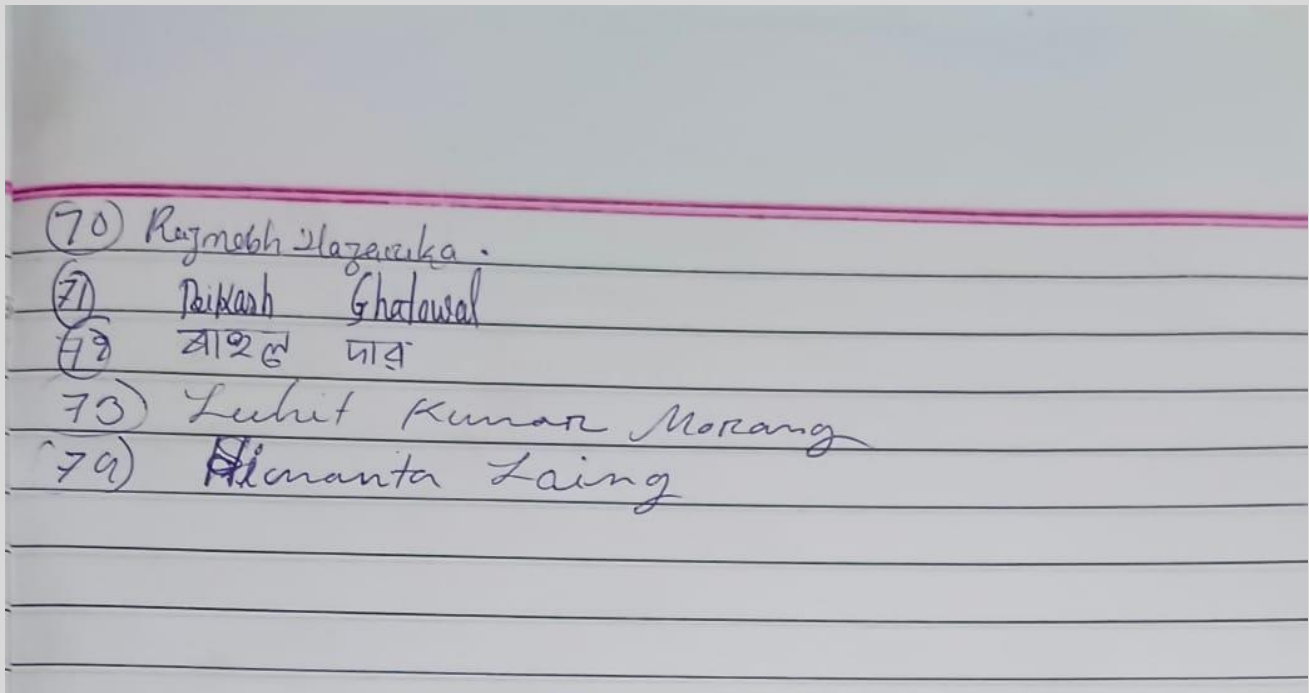 70) Rajmobh Hazarika.
71) Bikash Ghatowal
72) ৰাহুল দাস
73) Luhit Kumar Morang
74) Himanta Laing